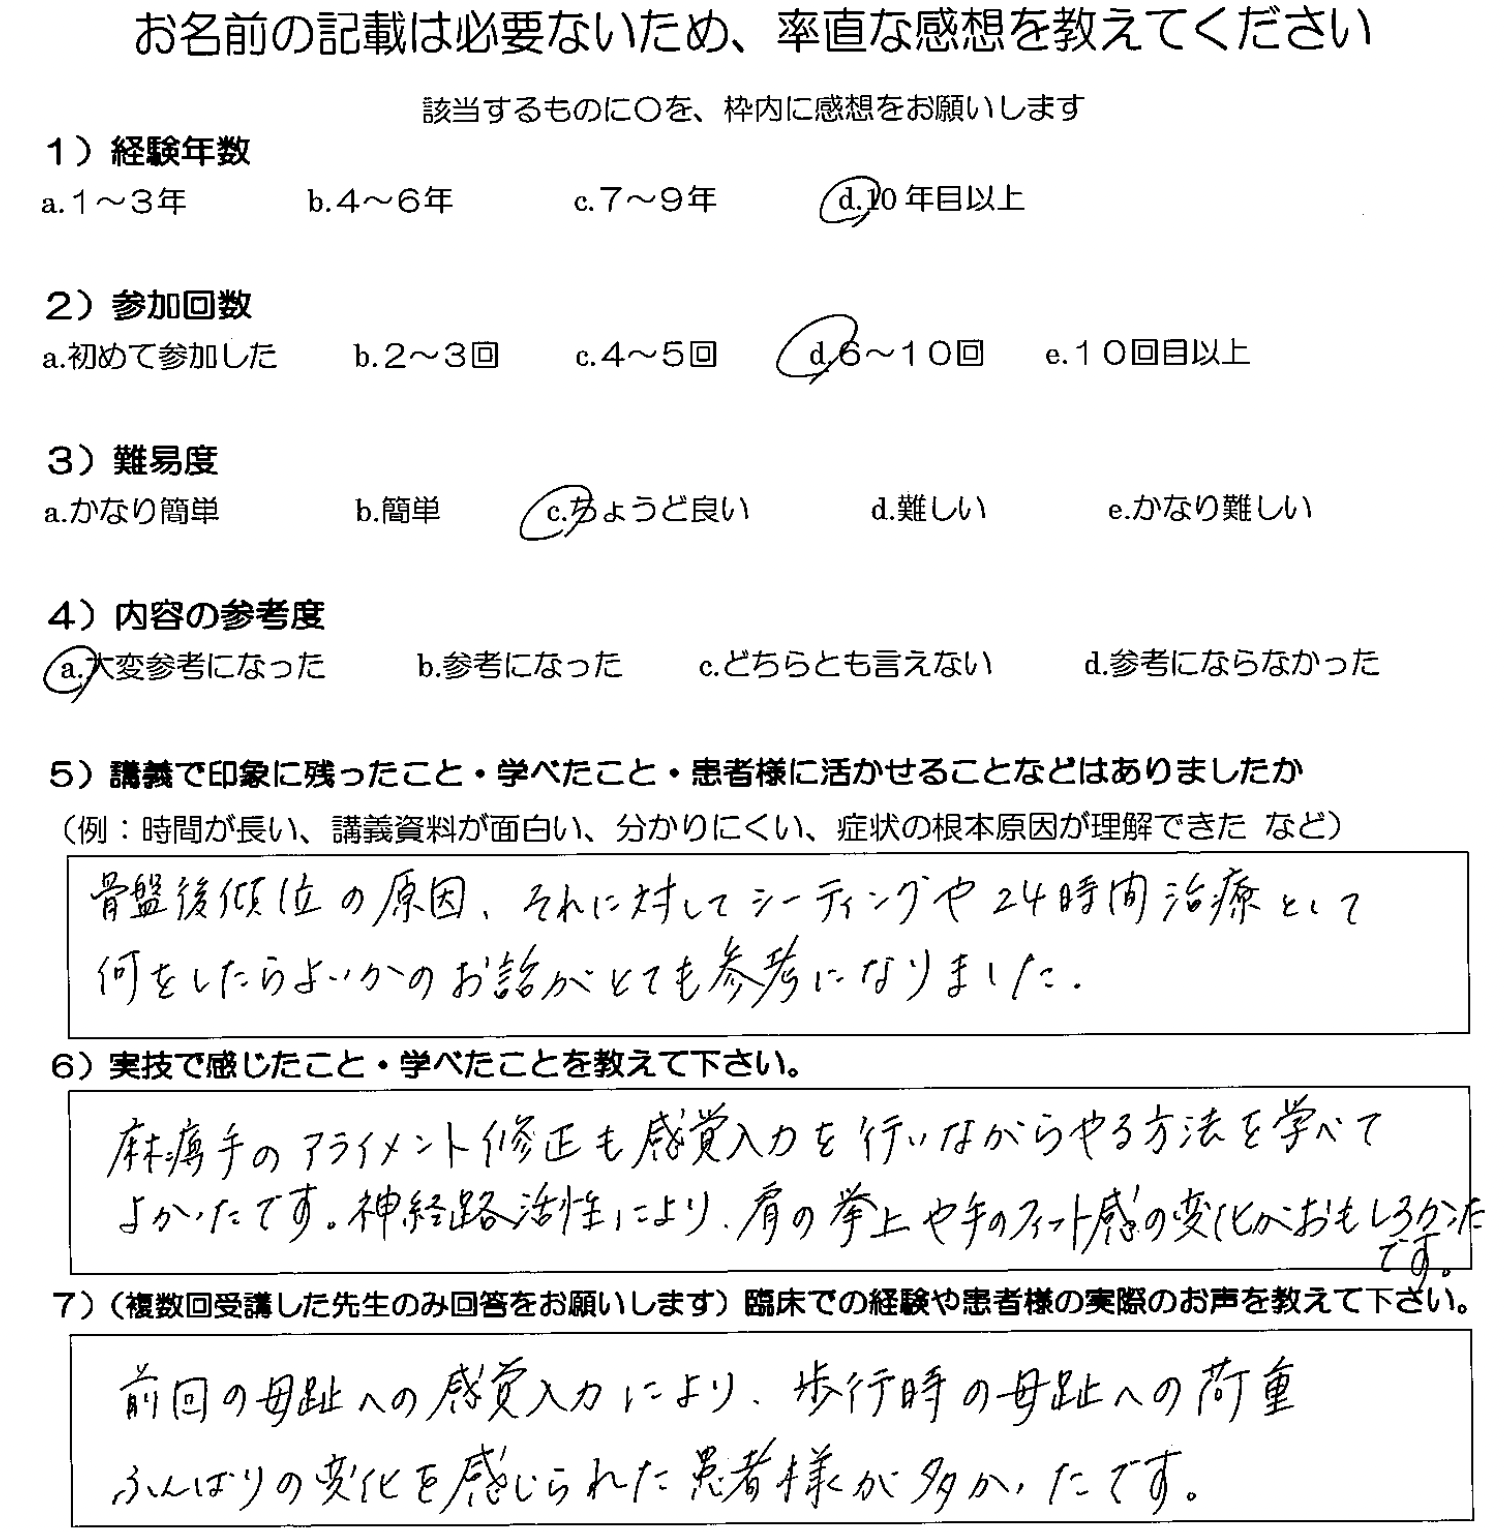 お名前の記載は必要ないため、率直な感想を教えてください
該当するものに○を、枠内に感想をお願いします
1）経験年数
a.1～3年 b.4～6年 c.7～9年 d.10年目以上
2）参加回数
a.初めて参加した b.2～3回 c.4～5回 d.6～10回 e.10回目以上
3）難易度
a.かなり簡単 b.簡単 c.ちょうど良い d.難しい e.かなり難しい
4）内容の参考度
a.大変参考になった b.参考になった c.どちらとも言えない d.参考にならなかった
5）講義で印象に残ったこと・学べたこと・患者様に活かせることなどはありましたか
（例：時間が長い、講義資料が面白い、分かりにくい、症状の根本原因が理解できた など）
骨盤後傾位の原因、それに対してシーティングや24時間治療として
何をしたらよいかのお話がとても参考になりました.
6）実技で感じたこと・学べたことを教えて下さい。
麻痺手のアライメント修正も感覚入力を行いながらやる方法を学べて
よかったです。神経路活性により、肩の挙上や手のフィット感の変化がおもしろかった
です。
7）（複数回受講した先生のみ回答をお願いします）臨床での経験や患者様の実際のお声を教えて下さい。
前回の母趾への感覚入力により、歩行時の母趾への荷重
ふんばりの変化を感じられた患者様が多かったです。